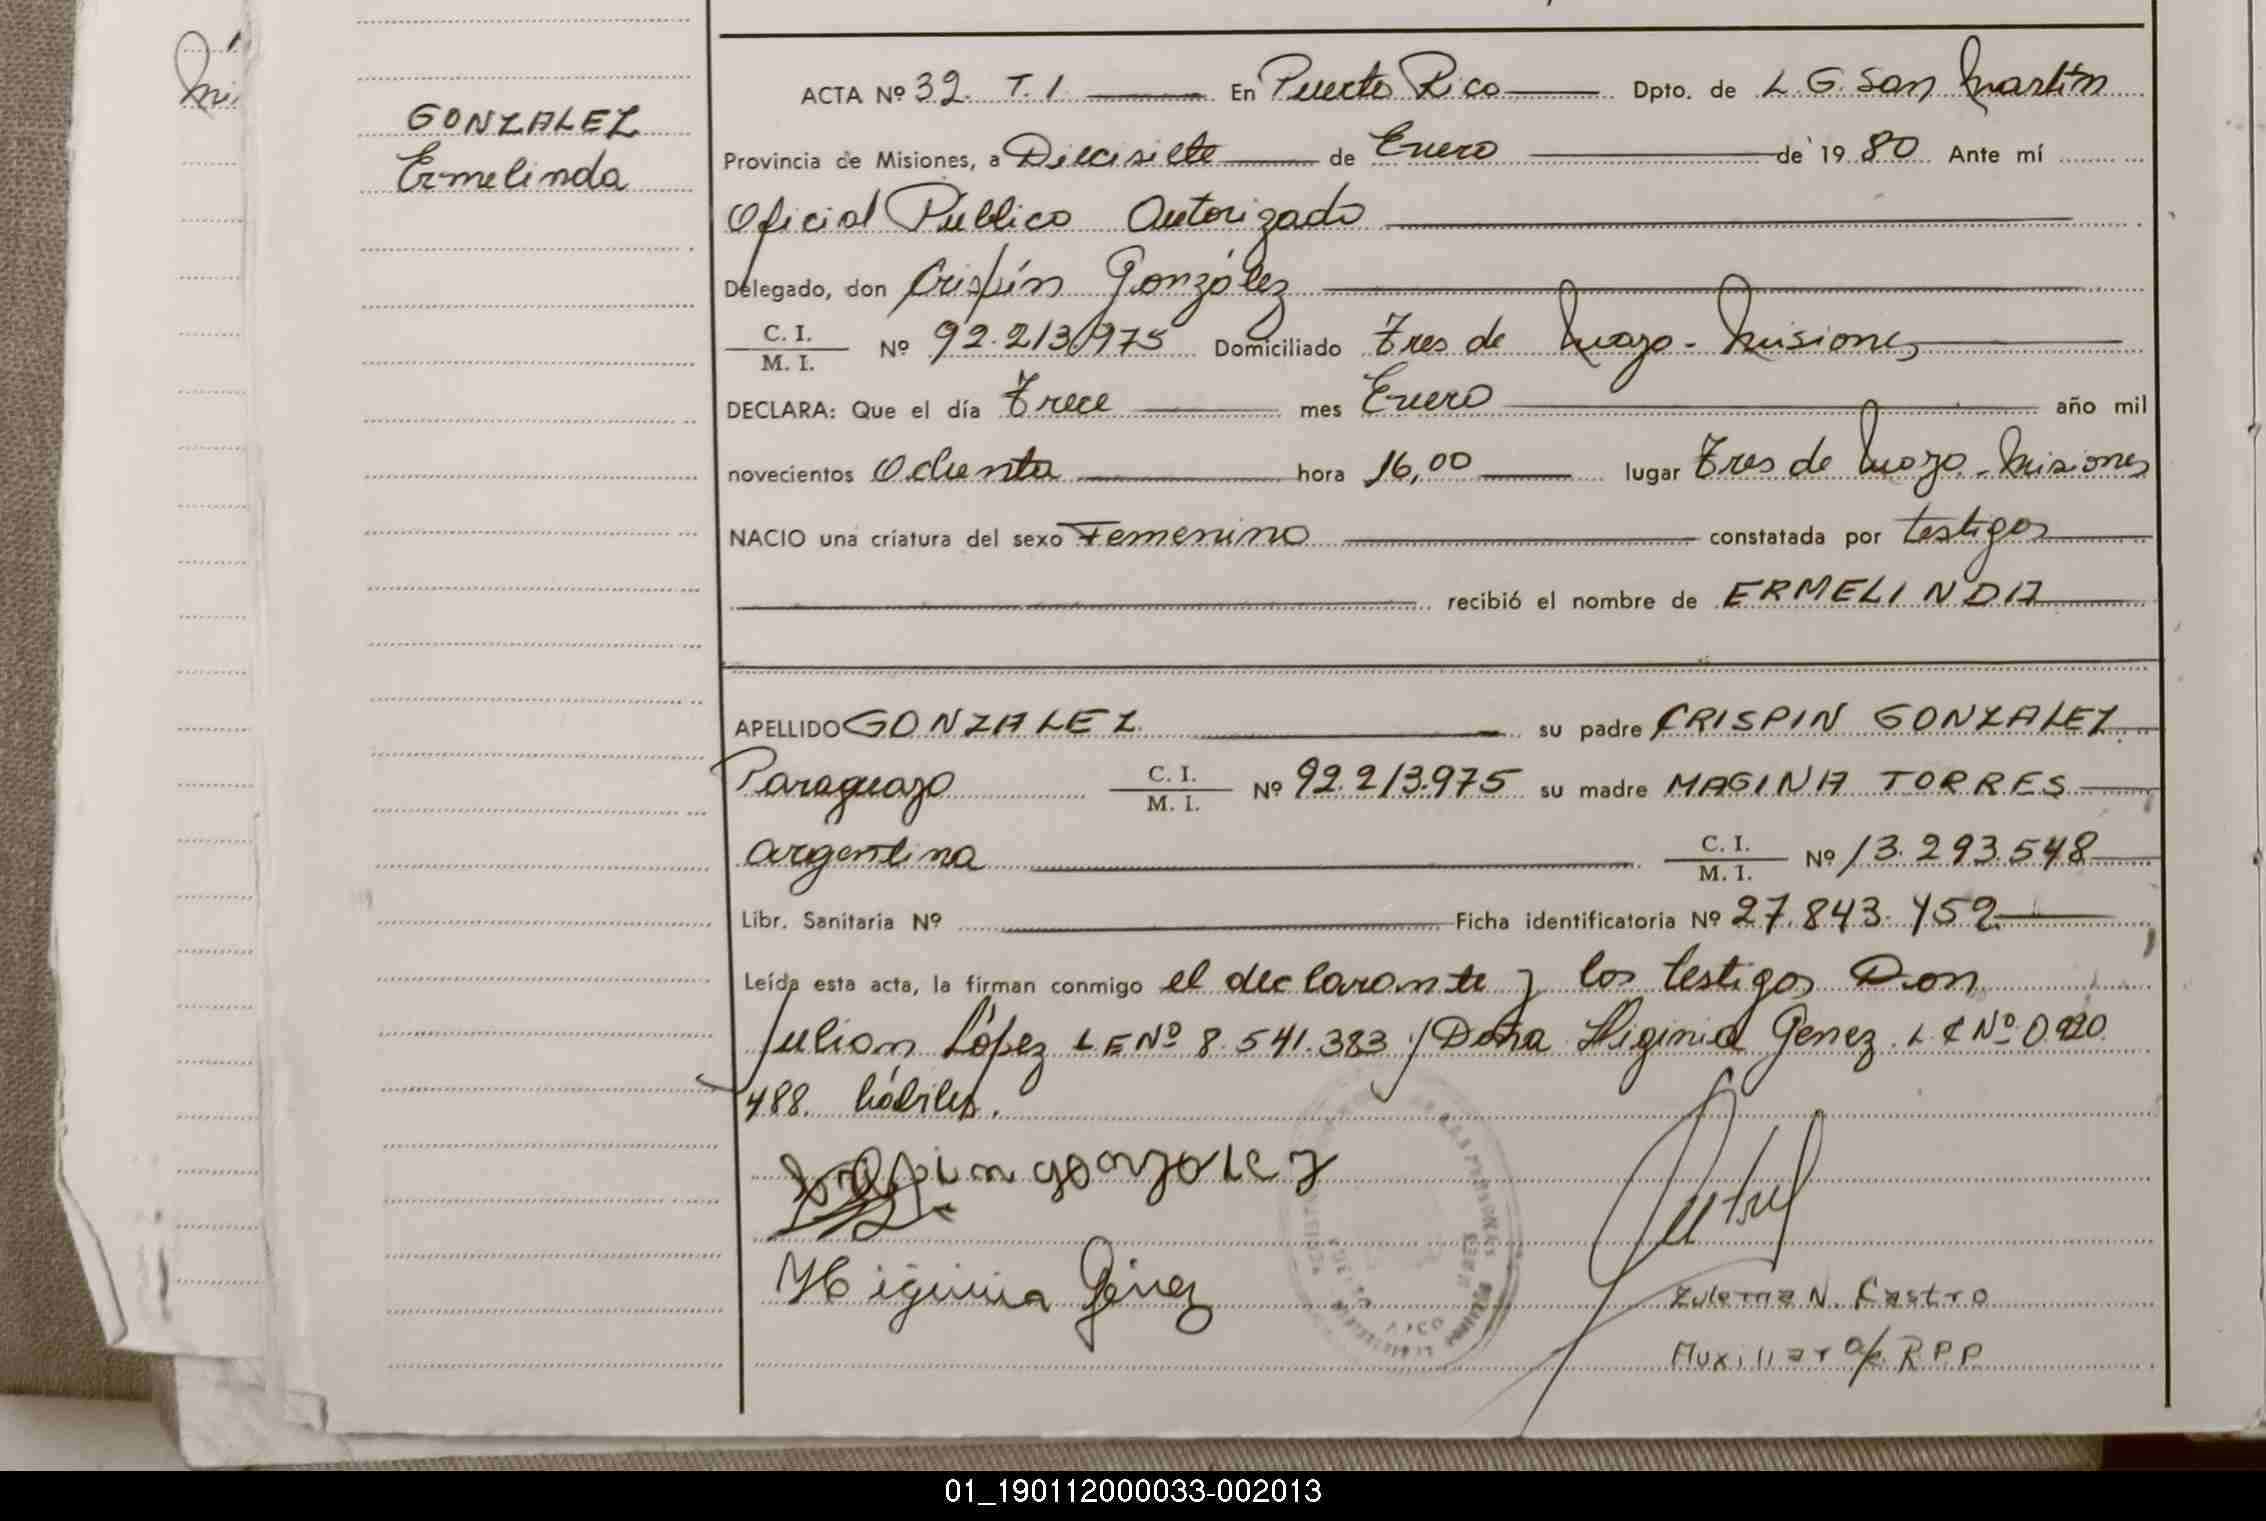 GONZALEZ
Ermelinda
ACTA Nº 32 T. 1 En Puerto Rico Dpto. de L. G. San Martín
Provincia de Misiones, a Diecisiete de Enero de 19 80 Ante mí
Oficial Público Autorizado
Delegado, don Crispín González
C. I.
M. I. Nº 92.213.975 Domiciliado Tres de Mayo - Misiones
DECLARA: Que el día Trece mes Enero año mil
novecientos Ochenta hora 16,00 lugar Tres de Mayo - Misiones
NACIO una criatura del sexo Femenino constatada por testigos
recibió el nombre de ERMELINDA
APELLIDO GONZALEZ su padre CRISPIN GONZALEZ
Paraguayo C. I. M. I. Nº 92.213.975 su madre MAGINA TORRES
Argentina C. I. M. I. Nº 13.293.548
Libr. Sanitaria Nº Ficha identificatoria Nº 27.843.452
Leída esta acta, la firman conmigo el declarante y los testigos Don
Julian López L E Nº 8.541.383 y Doña Higinia Genez L C Nº 0.920.
488. hábiles.
Crispin gonzalez
Higinia Génez
Zulema N. Castro
Auxiliar a/c R.P.P.
01_190112000033-002013